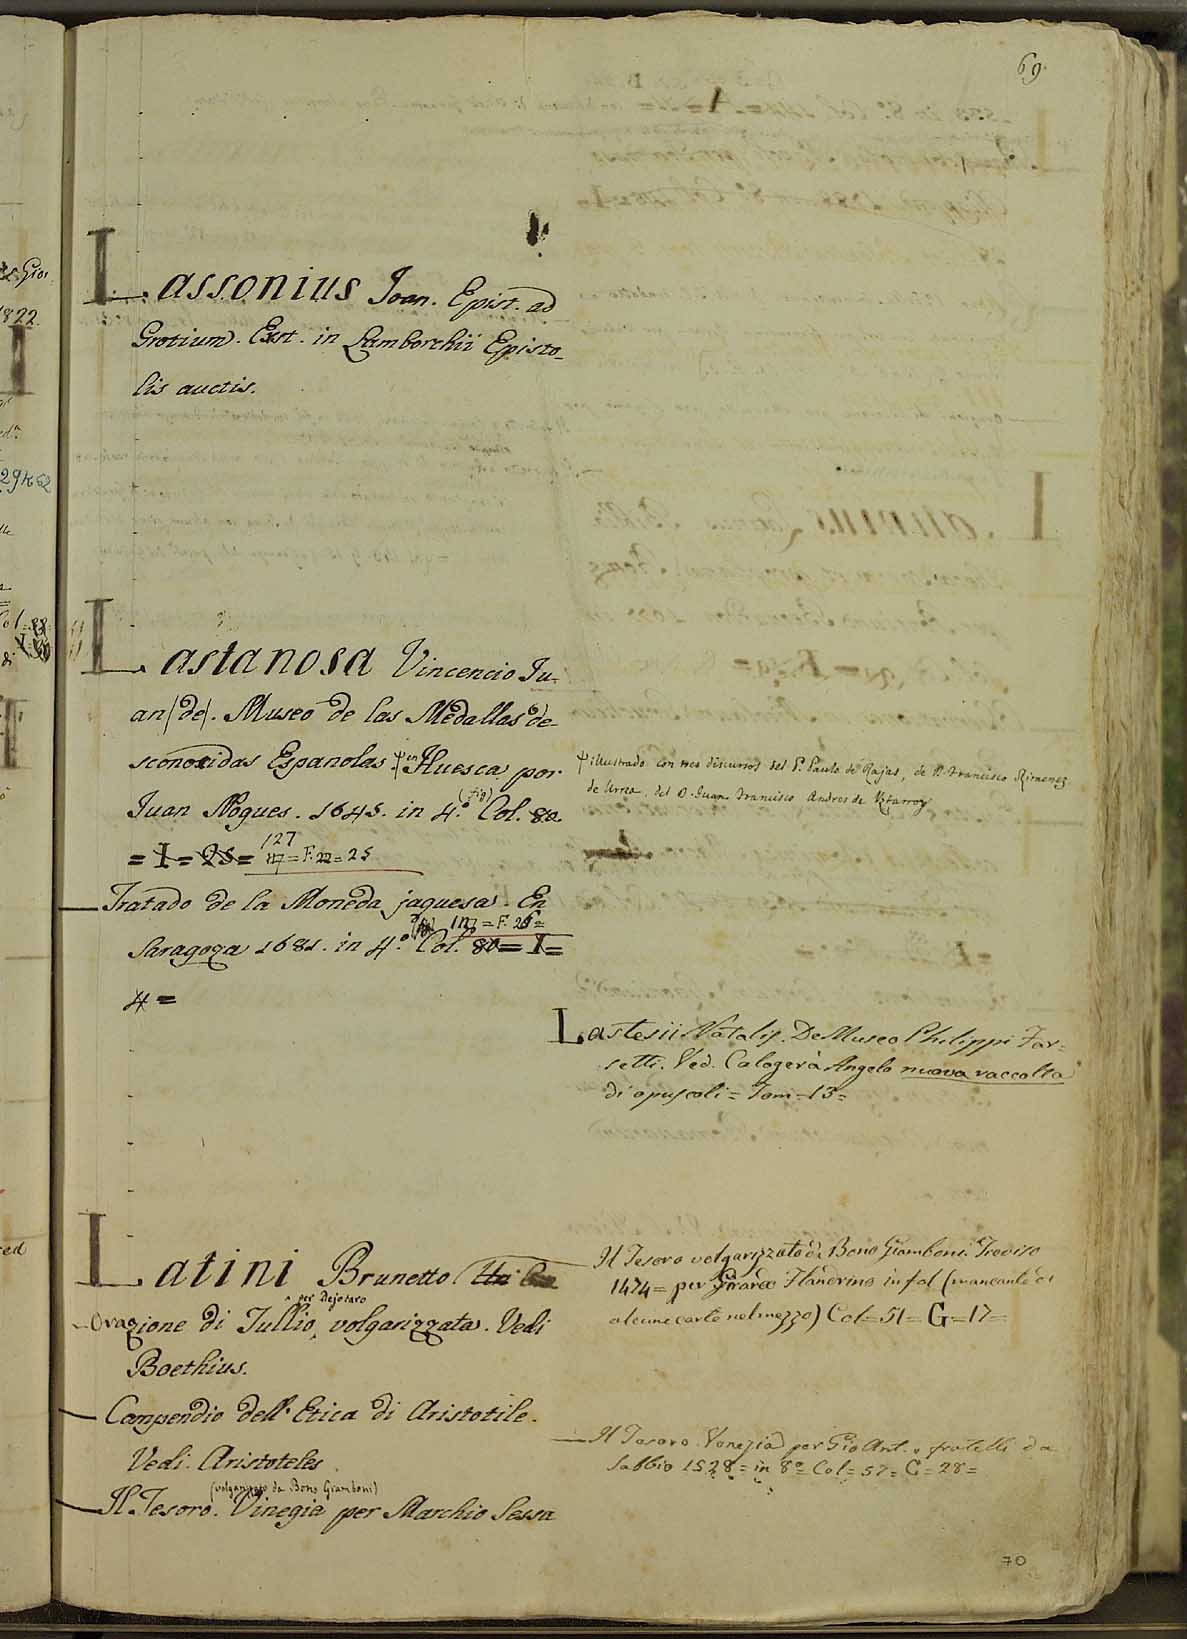 69.
Lassonius Joan. Epist. ad
Grotium. Exst. in Lamborchii Episto-
lis auctis.
Lastanosa Vincencio Ju-
an (de). Museo de las Medallas de-
sconoxidas Espanolas in Huesca por
Juan Nogues. 1645. in 4.º (fig) Col. 80.
= I = 25 = 127 = F. 22 = 25
illustrado con tres discursos del P. Paulo de Rajas, de D. Francisco Ximenez
de Urrea, del D. Juan Francisco Andres de Uztarroz
Tratado de la Moneda jaquesa. En
Saragoza 1681. in 4.º Col. 80 = I =
127 = F. 26 =
4 =
Lastesii Natalis. De Museo Philippi Far-
setti. Ved. Calogerà Angelo nuova raccolta
di opuscoli = Tom = 13 =
Latini Brunetto
Orazione di Tullio per Dejotaro, volgarizzata. Vedi
Boethius.
Compendio dell'Etica di Aristotile.
Vedi Aristoteles.
Il Tesoro. (volgarizzato da Bono Giamboni) Vinegia per Marchio Sessa
Il Tesoro volgarizzato da Bono Giamboni. Treviso
1474 = per Girardo Flandrino in fol (mancante di
alcune carte nel mezzo) Col = 51 = G = 17 =
Il Tesoro Venezia per Gio Ant. e fratelli da
Sabbio 1528 = in 8º = Col = 57 = C = 28 =
70